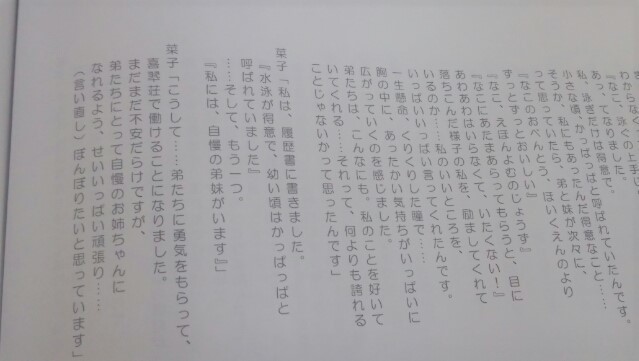 わからなく
『なこ、泳ぐの上手じ
あっ、てなりました。
私、泳ぎだけは得意で。
小さな頃、かっぱっぱと呼ばれていたんです。
そうか、私にもあったんだ得意なこと……
って思っていたら、弟と妹が次々に、
『なこのおべんとう、ほいくえんのより
ずっとずっとおいしい』
『なこ、えほんよむのじょうず』
『なこにあたまあらってもらうと、目に
あわあわはいらなくて、いたくない！』
落ちこんだ様子の私を、励ましてくれて
いるのか……私のいいところを、
いっぱいいっぱい言ってくれたんです。
一生懸命、くりくりした瞳で……
胸の中に、あったかい気持ちがいっぱいに
広がっていくのを感じました。
弟たちは、こんなにも。私のことを好いて
いてくれる……それって、何よりも誇れる
ことじゃないかって思ったんです」
菜子「私は、履歴書に書きました。
『水泳が得意で、幼い頃はかっぱっぱと
呼ばれていました』
……そして、もう一つ。
『私には、自慢の弟妹がいます』」
菜子「こうして……弟たちに勇気をもらって、
喜翆荘で働けることになりました。
まだまだ不安だらけですが、
弟たちにとって自慢のお姉ちゃんに
なれるよう、せいいっぱい頑張り……
（言い直し）ぼんぼりたいと思っています」